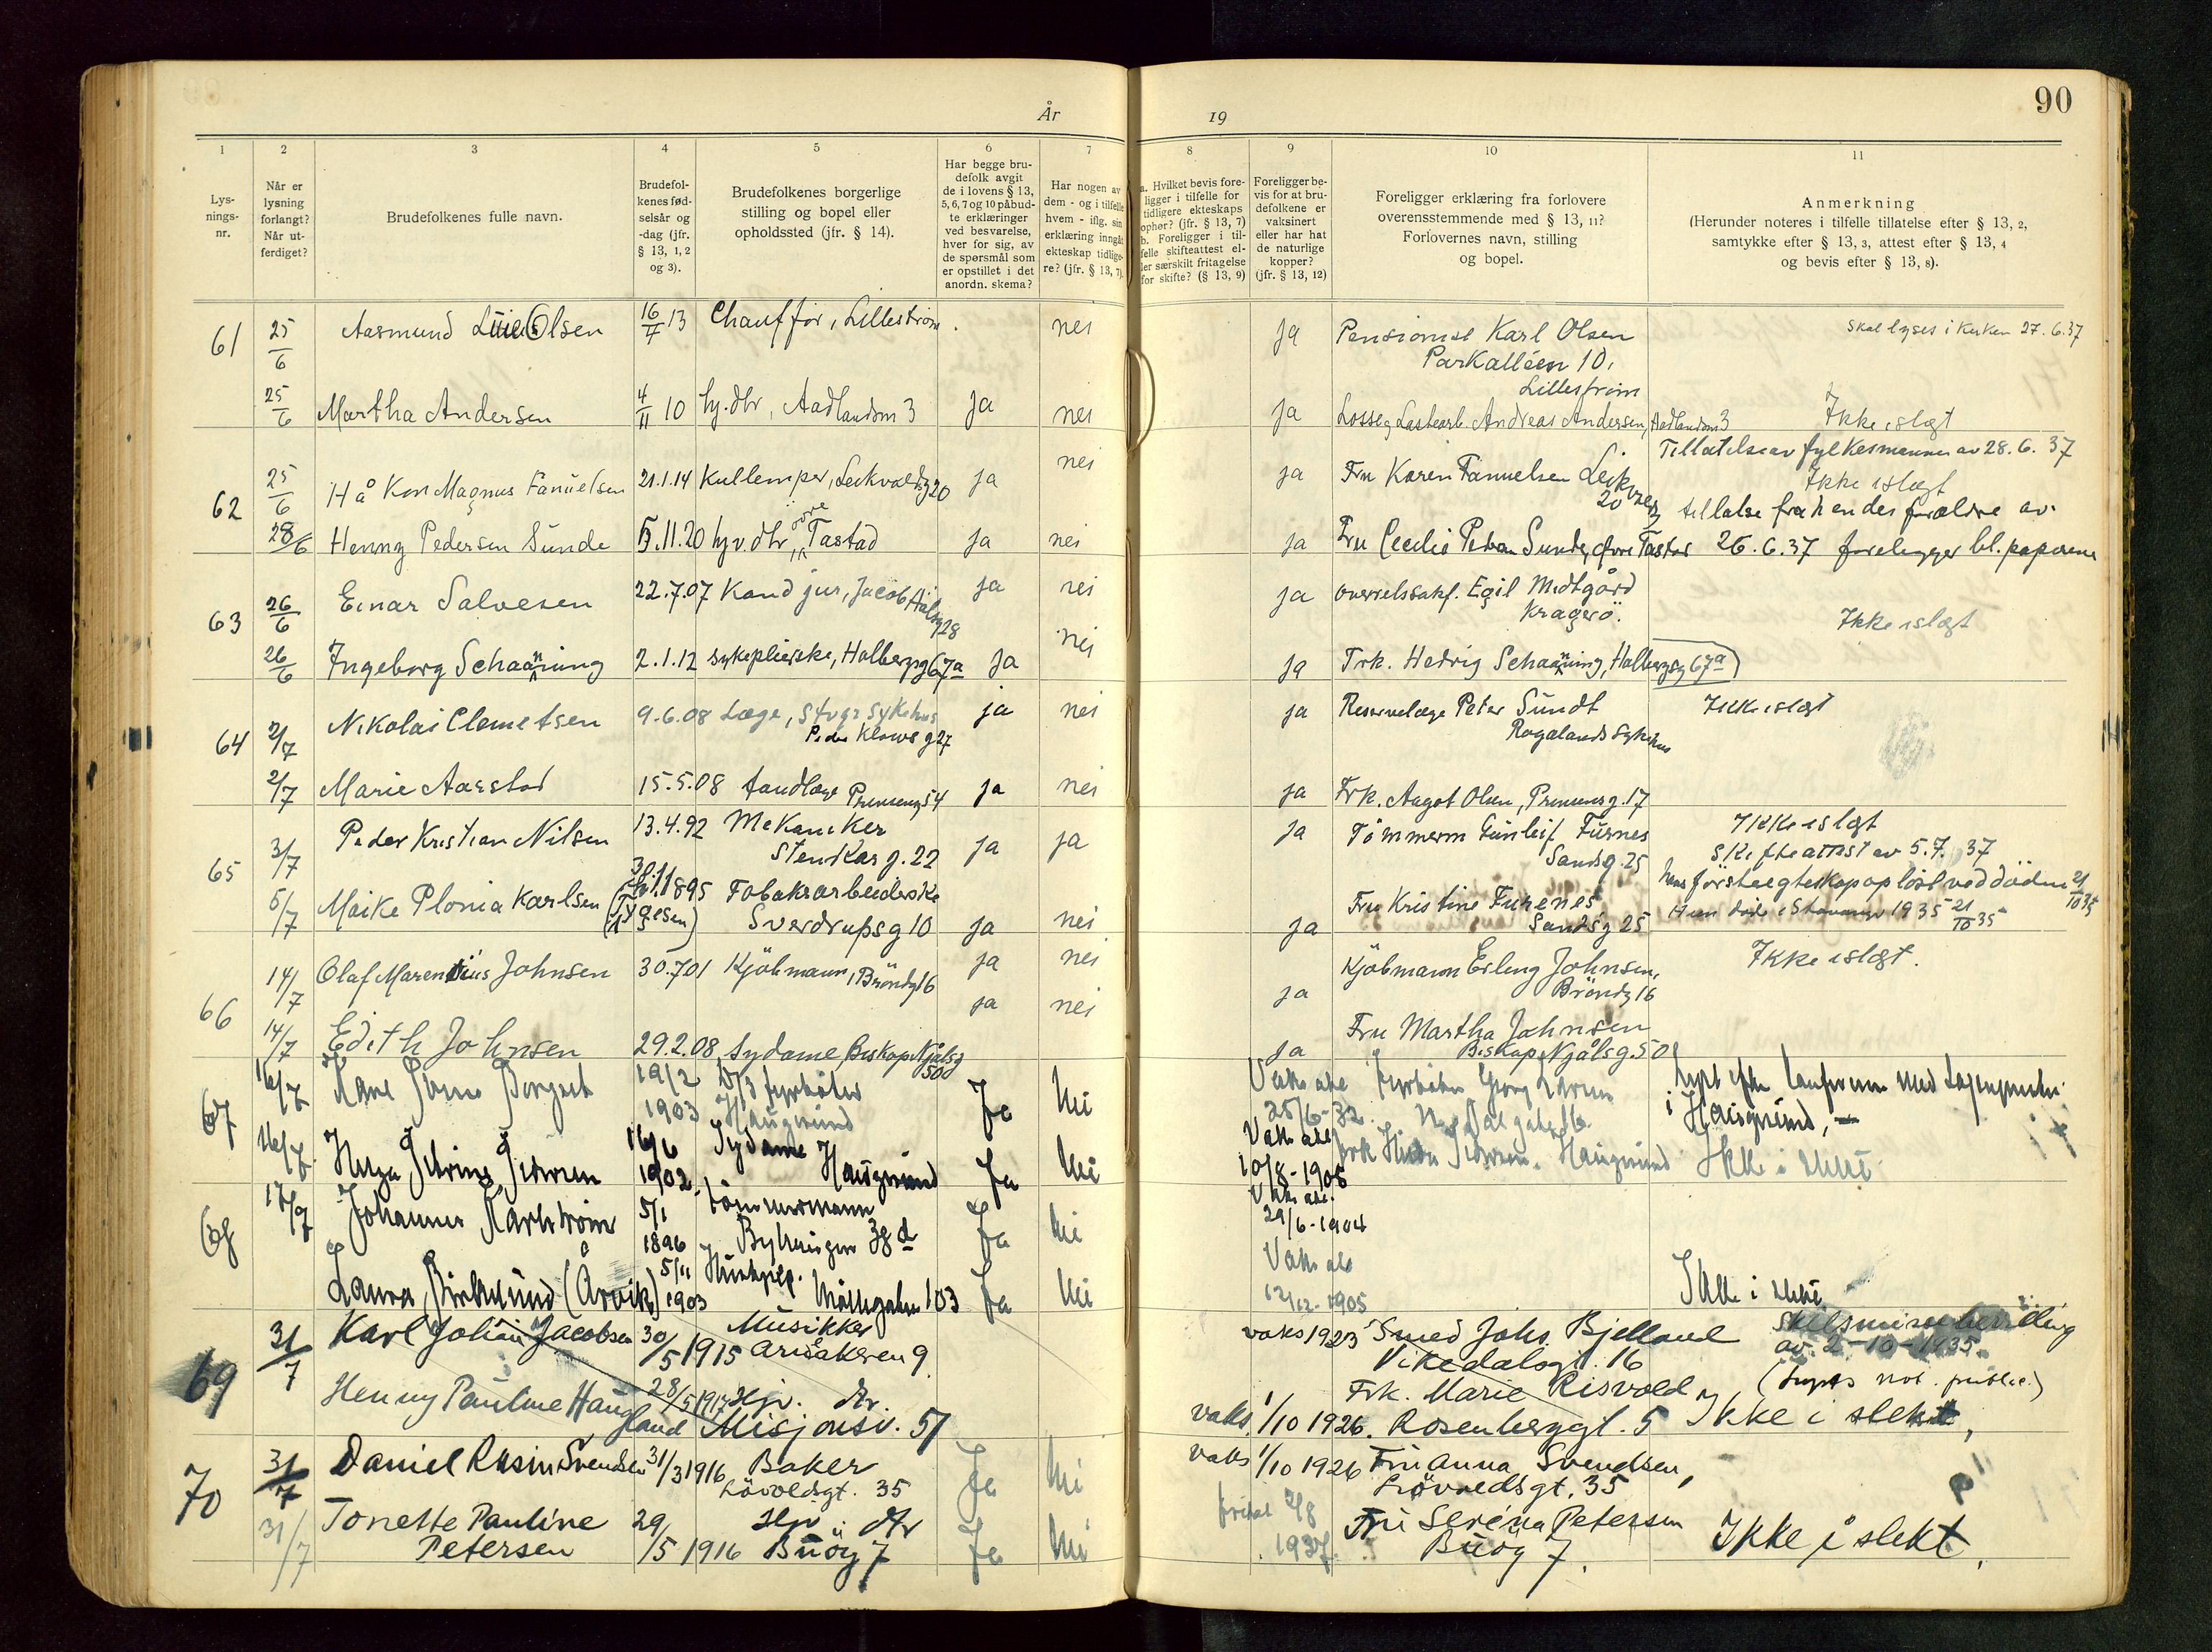 År 19
90
1 2 3 4 5 6 7 8 9 10 11
Lys-
nings-
nr.
Når er
lysning
forlangt?
Når ut-
ferdiget?
Brudefolkenes fulle navn.
Brudefol-
kenes fød-
selsår og
-dag (jfr.
§ 13, 1, 2
og 3).
Brudefolkenes borgerlige
stilling og bopel eller
opholdssted (jfr. § 14).
Har begge bru-
defolk avgit
de i lovens § 13,
5, 6, 7 og 10 påbud-
te erklæringer
ved besvarelse,
hver for sig, av
de spørsmål som
er opstillet i det
anordn. skema?
Har nogen av
dem - og i tilfelle
hvem - iflg. sin
erklæring inngåt
ekteskap tidlige-
re? (jfr. § 13, 7).
a. Hvilket bevis fore-
ligger i tilfelle for
tidligere ekteskaps
ophør? (jfr. § 13, 7)
b. Foreligger i til-
felle skifteattest el-
ler særskilt fritagelse
for skifte? (§ 13, 9)
Foreligger be-
vis for at bru-
defolkene er
vaksinert
eller har hat
de naturlige
kopper?
(jfr. § 13, 12)
Foreligger erklæring fra forlovere
overensstemmende med § 13, 11?
Forlovernes navn, stilling
og bopel.
Anmerkning
(Herunder noteres i tilfelle tillatelse efter § 13, 2,
samtykke efter § 13, 3, attest efter § 13, 4
og bevis efter § 13, 8).
61 25/6 Aasmund Olsen 16/7 13 Chauffør, Lillestrøm nei ja Pensionist Karl Olsen Skal lyses i kirken 27.6.37
Parkalléen 10,
Lillestrøm
25/6 Martha Andersen 4/11 10 hj.dtr, Aadlandsm 3 ja nei ja Losse og Lastearb. Andreas Andersen, Aadlandsm 3 Ikke i slegt
62 25/6 Håkon Magnus Fanuelsen 21.1.14 Kullemper, 20 ja nei ja Fru Karen Fanuelsen Tillatelse av fylkesmannen av 28.6.37
20 Ikke i slegt
28/6 Henny Pedersen Sunde 5.11.20 hjv. dtr, øvre Tastad ja nei ja Fru Cecilie Sunde, øvre Tastad tillatelse fra hendes forældre av
26.6.37 foreligger bl. papirene
63 26/6 Einar Salvesen 22.7.07 Kand jur, Jacob 28 ja nei ja overrelssakf. Egil Midtgård
Kragerø. Ikke i slegt
26/6 Ingeborg Schaanning 2.1.12 sykepleierske, Holbergsg 67a ja nei ja Frk. Hedvig Schaanning, Holbergsg 67a
64 2/7 Nikolai Clemetsen 9.6.08 Læge, Stvgr Sykehus ja nei ja Reservelæge Peter Sundt Ikke i slegt
Peder Klows g 27 Rogalands Sykehus
2/7 Marie Aarstad 15.5.08 tandlæge 54 ja nei ja Frk. Aagot Olsen, 17
65 3/7 Peder Kristian Nilsen 13.4.92 Mekaniker ja ja ja Tømmerm Gunleif Furnes Ikke i slegt
Stenkarg. 22 Sandsg. 25 Skifteattest av 5.7.37
5/7 Maike Plonia Karlsen (Tygesen) 1895 Tobakarbeiderske ja nei ja Fru Kristine Furenes Hans første egteskap opløst ved døden 21/10 35
Sverdrupsg 10 Sandsg 25 Hun døde i Stavanger 1935 21/10 35
66 14/7 Olaf Marentius Johnsen 30.7.01 Kjøbmann, Brøndg 16 ja nei ja Kjøbmann Erling Johnsen, Ikke i slegt.
Brøndg 16
14/7 Edith Johnsen 29.2.08 Sydame Biskop Njålsg 50 ja nei ja Fru Martha Johnsen
Biskop Njålsg. 50
67 16/7 19/2 1903 fyrbøter Haugesund Ja Nei Vaks att 25/6-32
i Haugesund,
16/7 16/6 1902 Sydame Haugesund Ja Nei Vaks att 10/8-1908 Haugesund Ikke i slekt
68 17/7 Johannes Karlstrøm 5/1 1896 Tømmermann 38 d Ja Nei Vaks att. 29/6-1904
Laura Birkelund (Årvik) 5/11 1903 Møllegaten 103 Ja Nei Vaks att 12/12-1905 Ikke i slekt
69 31/7 Karl Johan Jacobsen 30/5 1915 Musikker vaks 1923 Smed Johs. Bjelland
Arisåkeren 9. Vikedalsgt. 16 av 2-10-1935.
Henny Pauline Haugland 28/5 1917 Hjv. dtr. Frk. Marie Risvold (Lyses not. public.)
Misjonsv. 51 vaks. 1/10 1926. Rosenberggt. 5 Ikke i slekt,
70 31/7 Daniel Rasin Svendsen 31/3 1916 Baker Ja Nei vaks 1/10 1926 Fru Anna Svendsen,
Løvoldsgt. 35 Løvvoldsgt. 35
31/7 Tonette Pauline 29/5 1916 Hjv. dtr Ja Nei 2/8 1937 Fru Serena Petersen Ikke i slekt,
Petersen Buøy 7 Buøy 7.